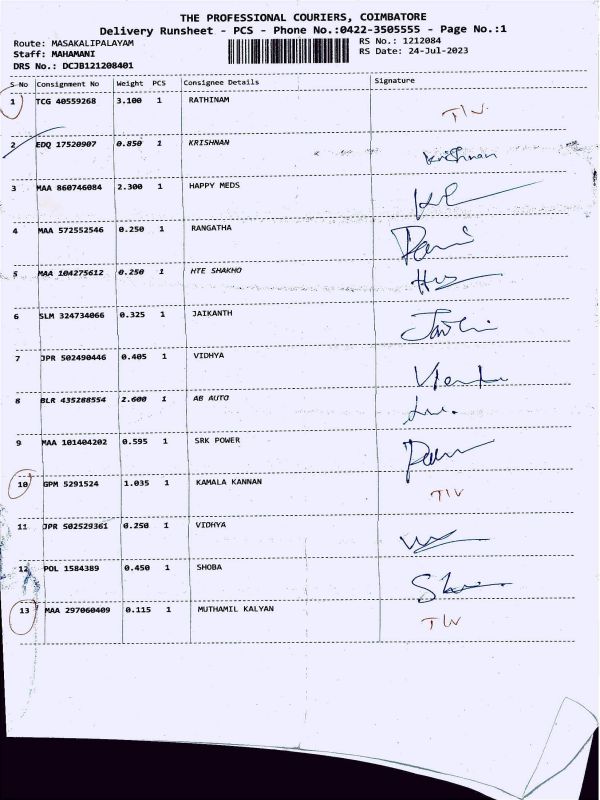 THE PROFESSIONAL COURIERS, COIMBATORE
Delivery Runsheet - PCS - Phone No.:0422-3505555 - Page No.:1
Route: MASAKALIPALAYAM RS No.: 1212084
Staff: MAHAMANI RS Date: 24-Jul-2023
DRS No.: DCJB121208401
S-No Consignment No Weight PCS Consignee Details Signature
1 TCG 40559268 3.100 1 RATHINAM
2 EDQ 17520907 0.850 1 KRISHNAN Krishnan
3 MAA 860746084 2.300 1 HAPPY MEDS
4 MAA 572552546 0.250 1 RANGATHA
5 MAA 104275612 0.250 1 HTE SHAKHO
6 SLM 324734066 0.325 1 JAIKANTH
7 JPR 502490446 0.405 1 VIDHYA
8 BLR 435288554 2.600 1 AB AUTO
9 MAA 101404202 0.595 1 SRK POWER
10 GPM 5291524 1.035 1 KAMALA KANNAN
11 JPR 502529361 0.250 1 VIDHYA
12 POL 1584389 0.450 1 SHOBA
13 MAA 297060409 0.115 1 MUTHAMIL KALYAN